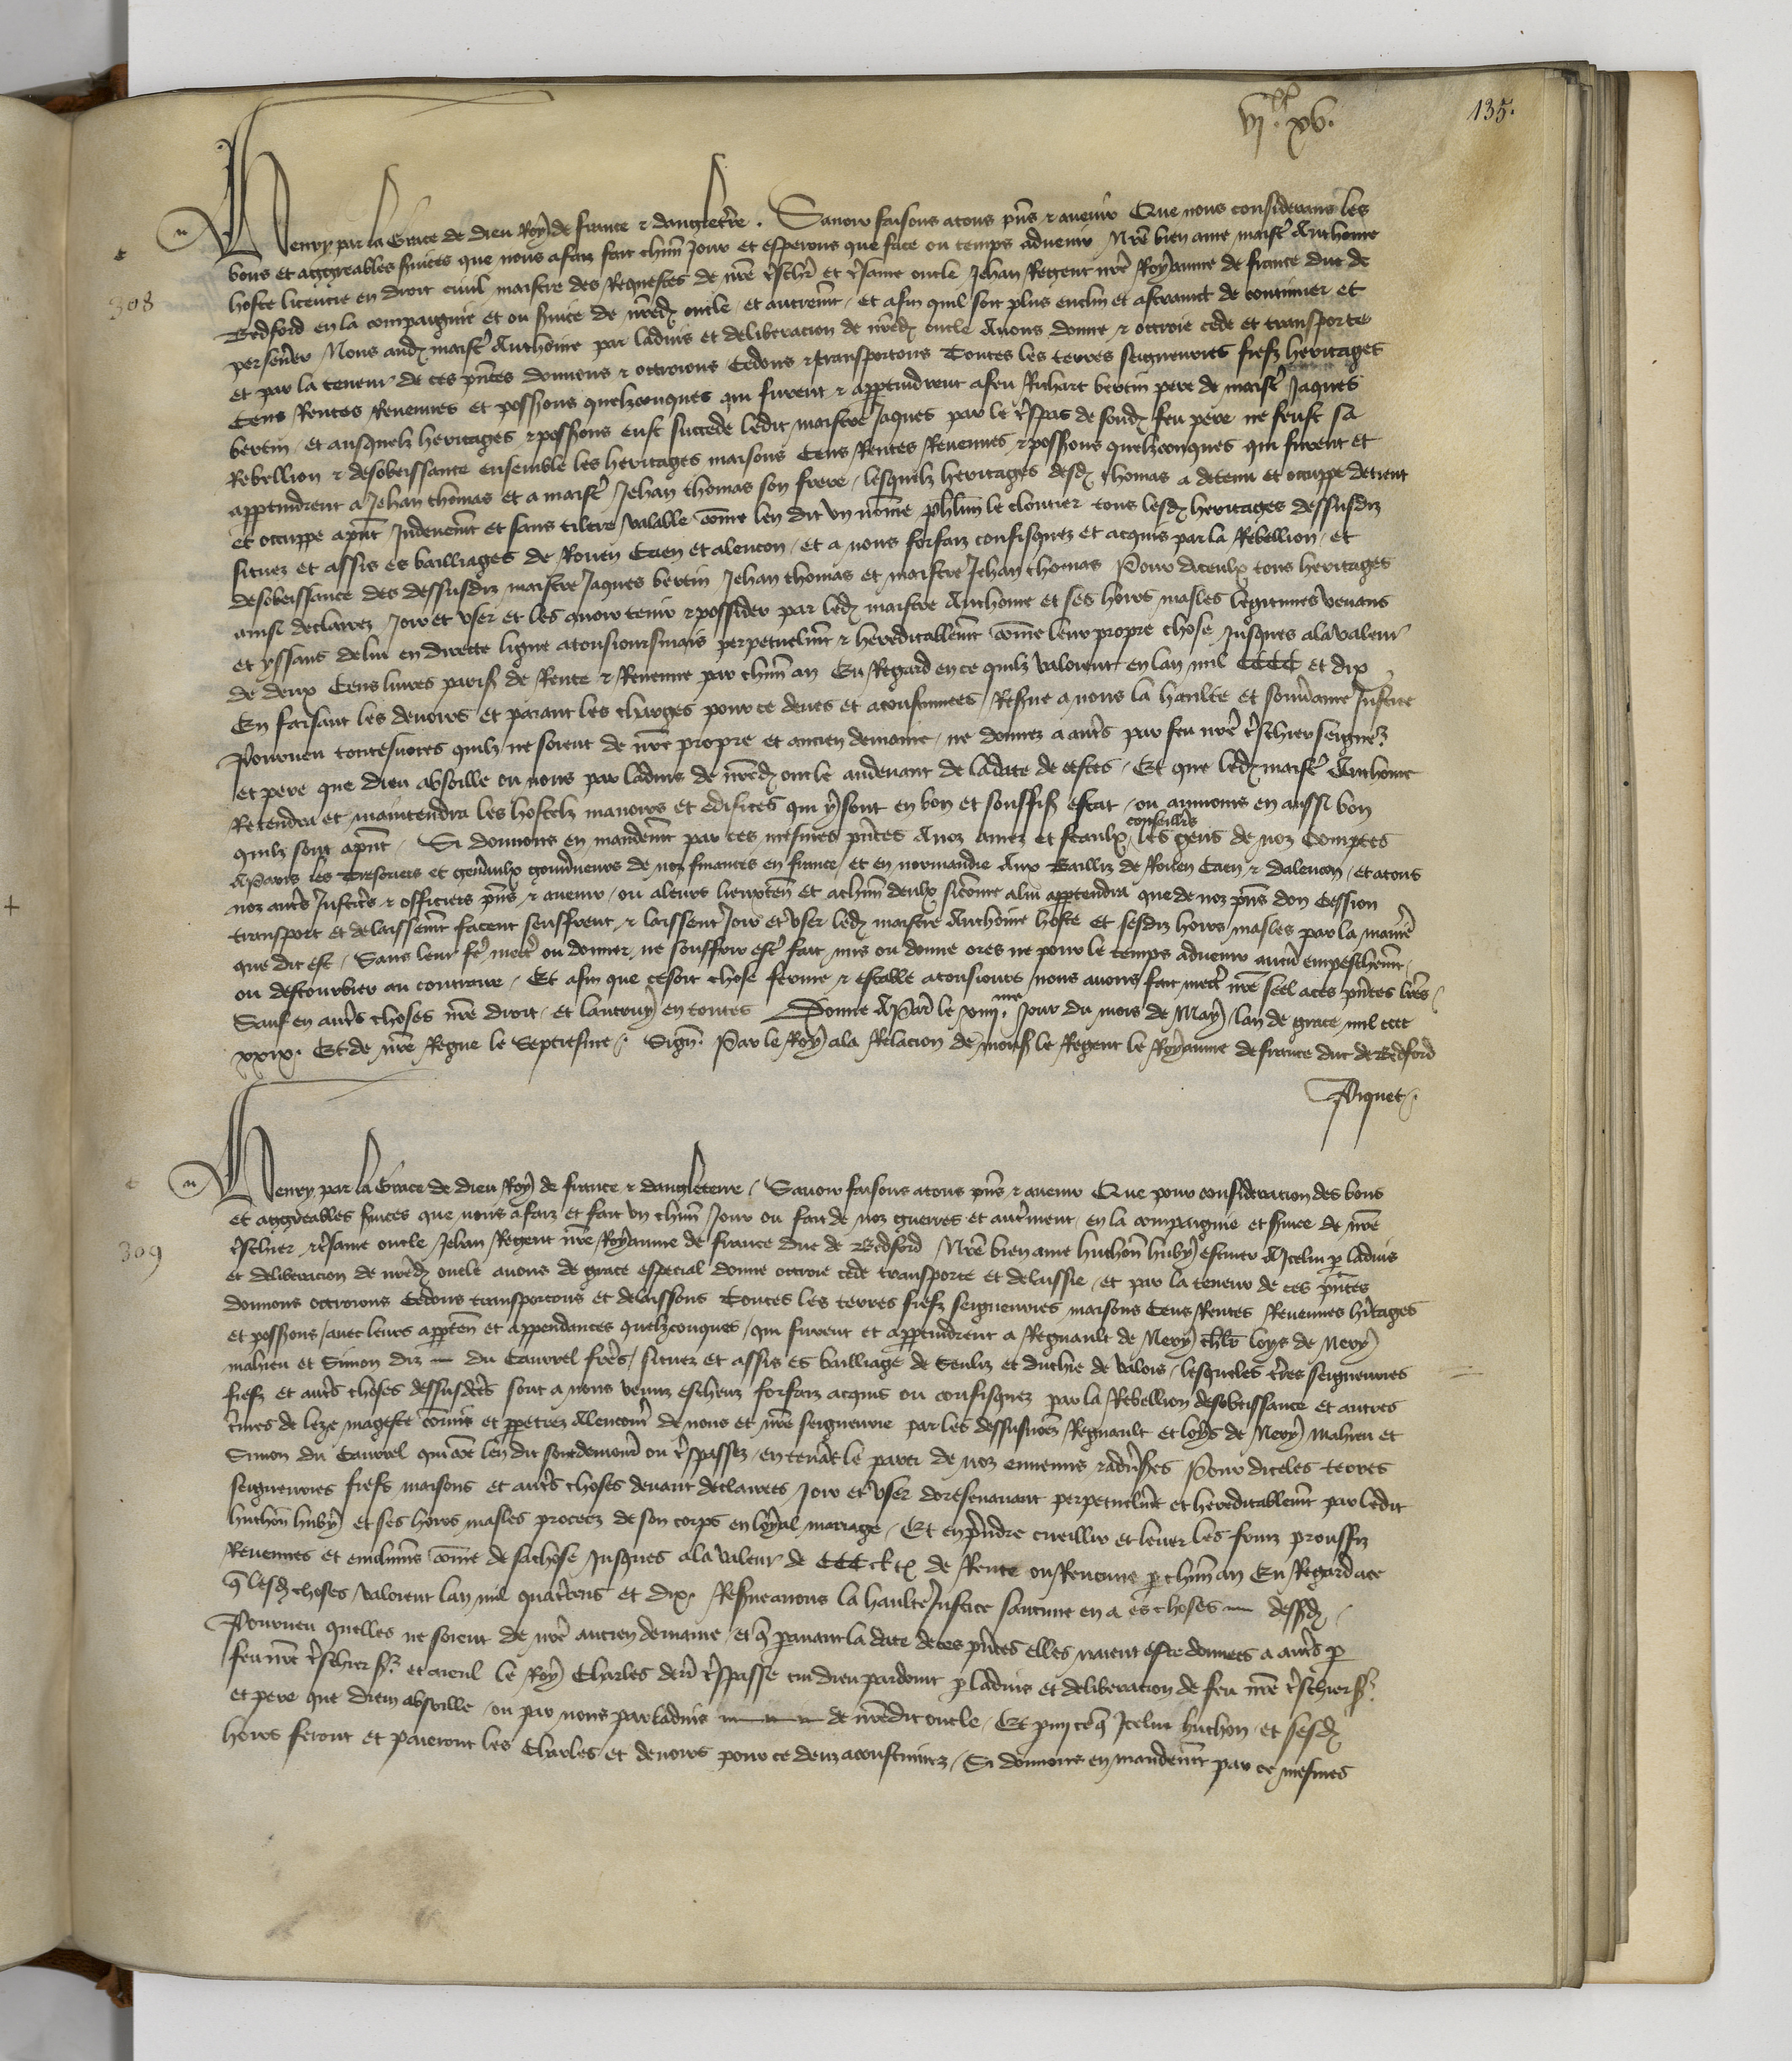 VIxx XV.
135.
Henry par la Grace de dieu Roy de france & dangleterre. Sauoir faisons a tous pñs & auenir Que nous considerans les
bons et aggreables seruices que nous a faiz fait chũn Jour et esperons que face ou temps aduenir Nr̃e bien ame maistr̃ Anthoine
hoste licencie en droit ciuil maistre des Requestes de nr̃e tr̃schr̃ et tr̃same oncle Jehan Regent nr̃e Royaume de france duc de
308
Bedford en la compaignie et ou seruice de nr̃ed oncle et autremt̃ et afin quil soit plus enclin et astraint de continuer et
perseuerer Nous aud maistr̃ Anthoine par laduis et deliberacion de nr̃ed oncle Auons donne & octroie cede et transporte
et par la teneur de ces pñtes donnons & octroions Cedons & transportons Toutes les terres seigneuries fiefz heritages
Cens Rentes Reuenues et possessions quelzconques qui furent & apptindrent a feu Richart bertin pere de maistr̃ Jaques
bertin et ausquelz heritages & possessions eust succede ledit maistre Jaques par le tr̃spas de soud feu pere ne feust sa
Rebellion & desobeissance ensemble les heritages maisons Cens Rentes Reuenues & possessions quelzconques qui furent et
apptindrent a Jehan thomas et a maistr̃ Jehan thomas son frere lesquelz heritages desd thomas a detenu et occuppe detient
et occuppe a pñt Induement et sans tiltre valable cõme len dit vn nõme phlĩn le cloutier tous lesd heritages dessusdiz
situez et assis es bailliages de Rouen Caen et alencon et a nous forfaiz confisquez et acquis par la Rebellion et
desobeissance des dessusdiz maistre Jaques bertin Jehan thomas et maistre Jehan thomas Pour diceulx tous heritages
ainsi declairez Joir et vser et les auoir tenir & posseder par led maistre Anthoine et ses hoirs masles legitimes venans
et yssans de lui en directe ligne a tousioursmais perpetuelmt̃ & hereditablemt̃ cõme leur propre chose Jusques a la valeur
de deux Cens liures parisis de Rente & Reuenue par chũn an Eu Regard en ce quilz valoient en lan mil CCCC et dix
En faisant les deuoirs et paiant les charges pour ce deues et acoustumees Reserue a nous la haulte et souueraine Justice
Pourueu toutesuoies quilz ne soient de nr̃e propre et ancien demaine ne donnez a autr̃s par feu nr̃e tr̃schier seigneur
et pere que dieu absoille ou nous par laduis de nr̃ed oncle au deuant de la date de cestes Et que led maistr̃ Anthoine
Retendra et maintendra les hostelz manoirs et edifices qui y sont en bon et souffis estat ou aumoins en aussi bon
quilz sont a pñt Si donnons en mandemt̃ par ces mesmes pñtes A noz amez et feaulx conseillr̃s les gens de noz Comptes
A Paris les Tresoriers et genr̃aulx gouuerneurs de noz finances en france et en normandie Aux Bailliz de Rouen Caen & dalencon et a tous
noz autr̃s Justiciers & officiers pñs & auenir ou a leurs lieuxten̄ et a chũn deulx sicõme a lui apptendra que de noz pñs don Cession
transport et delaissemt̃ facent seuffrent & laissent Joir et vser led maistre Anthoine hoste et sesdiz hoirs masles par la manier̃
que dit est Sans leur fr̃e mettr̃ ou donner ne souffrir estr̃ fait mis ou donne ores ne pour le temps aduenir aucũ empeschemt̃
ou destourbier au contraire Et afin que ce soit chose ferme & estable a tousiours nous auons fait mettr̃ nr̃e seel a ces pñtes lr̃es
Sauf en autr̃s choses nr̃e droit et lautruy en toutes Donne A Paris le XIIIIme. Jour du mois de May lan de grace mil cccc
xxix. Et de nr̃e Regne le Septiesme. Sign̄. Par le Roy a la Relacion de mons le Regent le Royaume de france duc de Bedford
Piquet.
Henry par la Grace de dieu Roy de france & dangleterre Sauoir faisons a tous pñs & auenir Que pour consideracion des bons
et aggreables seruices que nous a faiz et fait vn chũn Jour ou fait de noz guerres et autr̃ment en la compaignie et seruice de nr̃e
tr̃schier & tr̃same oncle Jehan Regent nr̃e Royaume de france duc de Bedford Nr̃e bien ame huchon huby escuier A Icelui p laduis
309
et deliberacion de nr̃ed oncle auons de grace especial donne octroie cede transporte et delaissie et par la teneur de ces pñtes
donnons octroions Cedons transportons et delaissons Toutes les terres fiefz seigneuries maisons Cens Rentes Reuenues hr̃itages
et possessions auec leurs apparten̄ et appendances quelzconques qui furent et apptindrent a Regnault de Nery chlr̃ loys de Nery
mahieu et Simon diz du Caurrel frer̃s situez et assis es bailliage de Senliz et duchie de valois lesqueles tr̃res seigneuries
fiefz et autr̃s choses dessusdcẽs sont a nous venuz escheuz forfaiz acquis ou confisquez par la Rebellion desobeissance et autres
crimes de leze mageste cõmis et ppetrez A lencontr̃ de nous et nr̃e seigneurie par les dessusnõez Regnault et loys de Nery mahieu et
Simon du Caurrel qui cõe len dit sont demourez ou tr̃spassez en tenãt le parti de noz ennemis & aduersr̃es Pour diceles terres
seigneuries fiefs maisons et autr̃s choses deuant declairees Joir et vser doresenauant perpetuelmt̃ et hereditablemt̃ par ledit
huchon huby et ses hoirs masles procreez de son corps en loyal mariage Et en pr̃ndre cueillir et leuer les fruiz prouffiz
Reuenues et emolumẽs cõme de sa chose Jusques a la valeur de CCC de Rente ou Reuenue p chũn an Eu Regard a ce
q̃ lesd choses valoient lan mil quatr̃cens et dix. Reserue a nous la haulte Justice saucune en a es choses dessd
Pourueu quelles ne soient de nr̃e ancien demaine et q̃ parauant la date de ces pñtes elles naient este donnees a autr̃s p
feu nr̃e tr̃schier sr̃ et aieul le Roy Charles derr̃ tr̃spasse cui dieu pardoint p laduis et deliberacion de feu nr̃e tr̃schier sr̃
et pere que dieu absoille ou par nous par laduis de nr̃edit oncle Et pmy ce q̃ Icelui huchon et sesd
hoirs feront et paieront les Charles et deuoirs pour ce deuz acoustumez Si donnons en mandemt̃ par ce mesmes